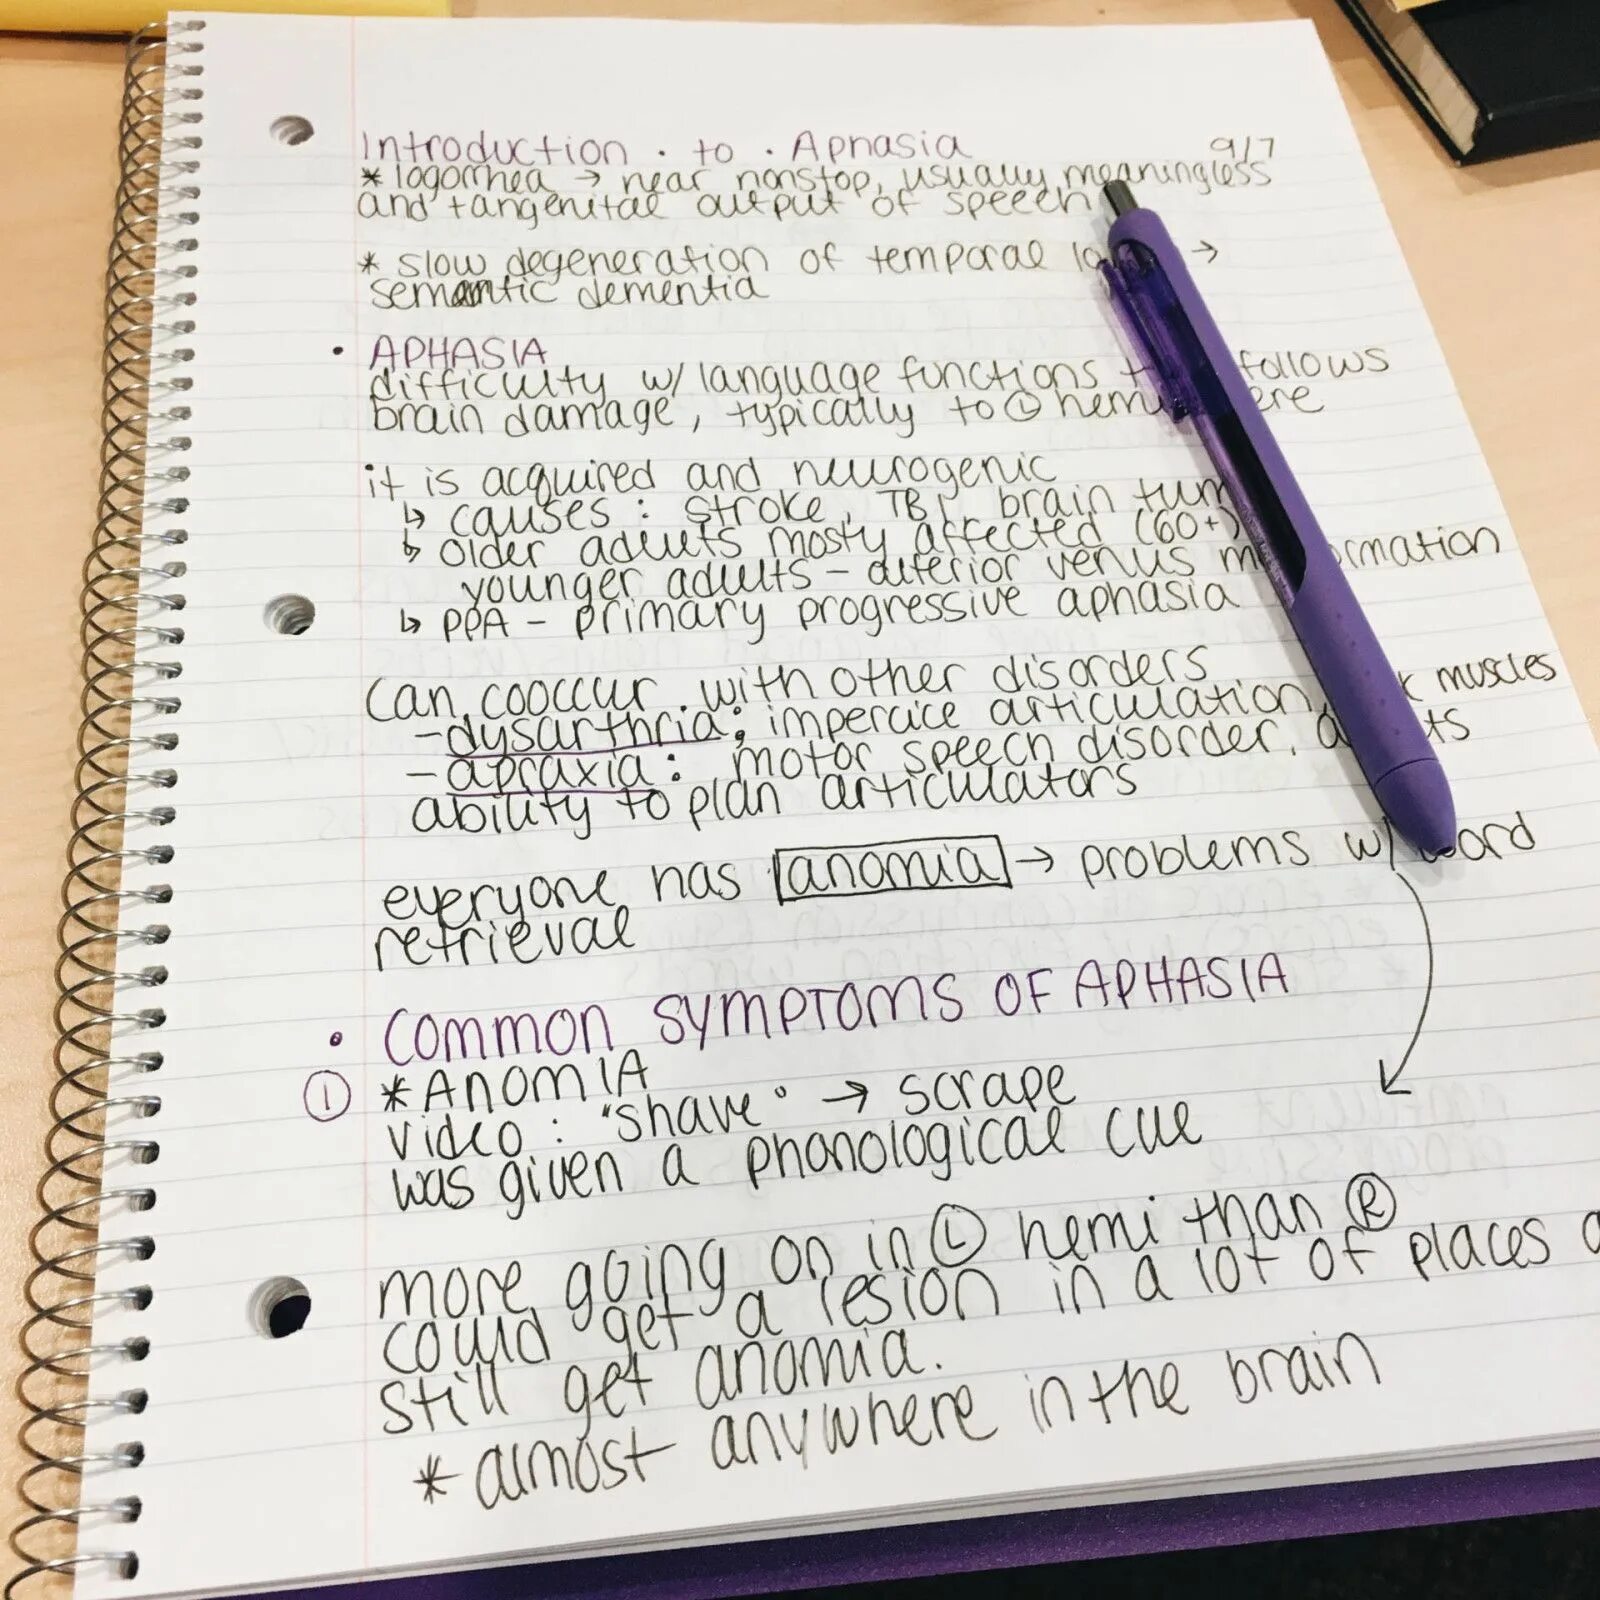 Introduction · to · Aphasia 9/7
* logorrhea → near nonstop, usually meaningless
and tangenital output of speech
* slow degeneration of temporal →
semantic dementia
• APHASIA
difficulty w/ language functions follows
brain damage, typically to Ⓛ
it is acquired and neurogenic
↳ causes : stroke, TBI, brain
↳ older adults mosty affected (60+)
younger adults - venus
↳ PPA - primary progressive aphasia
Can cooccur with other disorders
- dysarthria: impercice articulation, muscles
- apraxia: motor speech disorder,
ability to plan articulators
everyone has anomia → problems w/ word
retrieval
• COMMON SYMPTOMS OF APHASIA
① * ANOMIA
video : "shave" → scrape
was given a phonological cue
more going on in Ⓛ hemi than Ⓡ
could get a lesion in a lot of places
still get anomia.
* almost anywhere in the brain